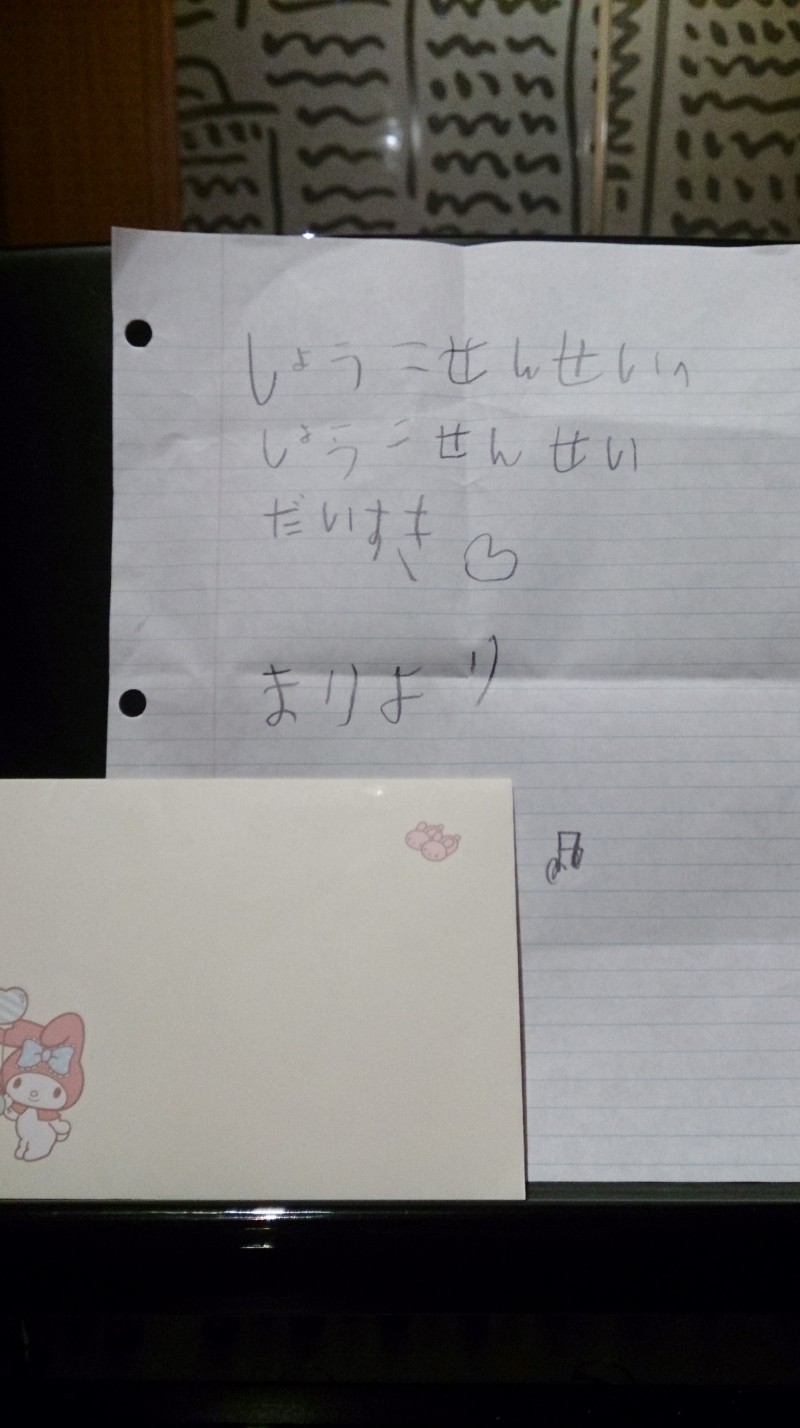 しょうこせんせいへ
しょうこせんせい
だいすき♡
まりより